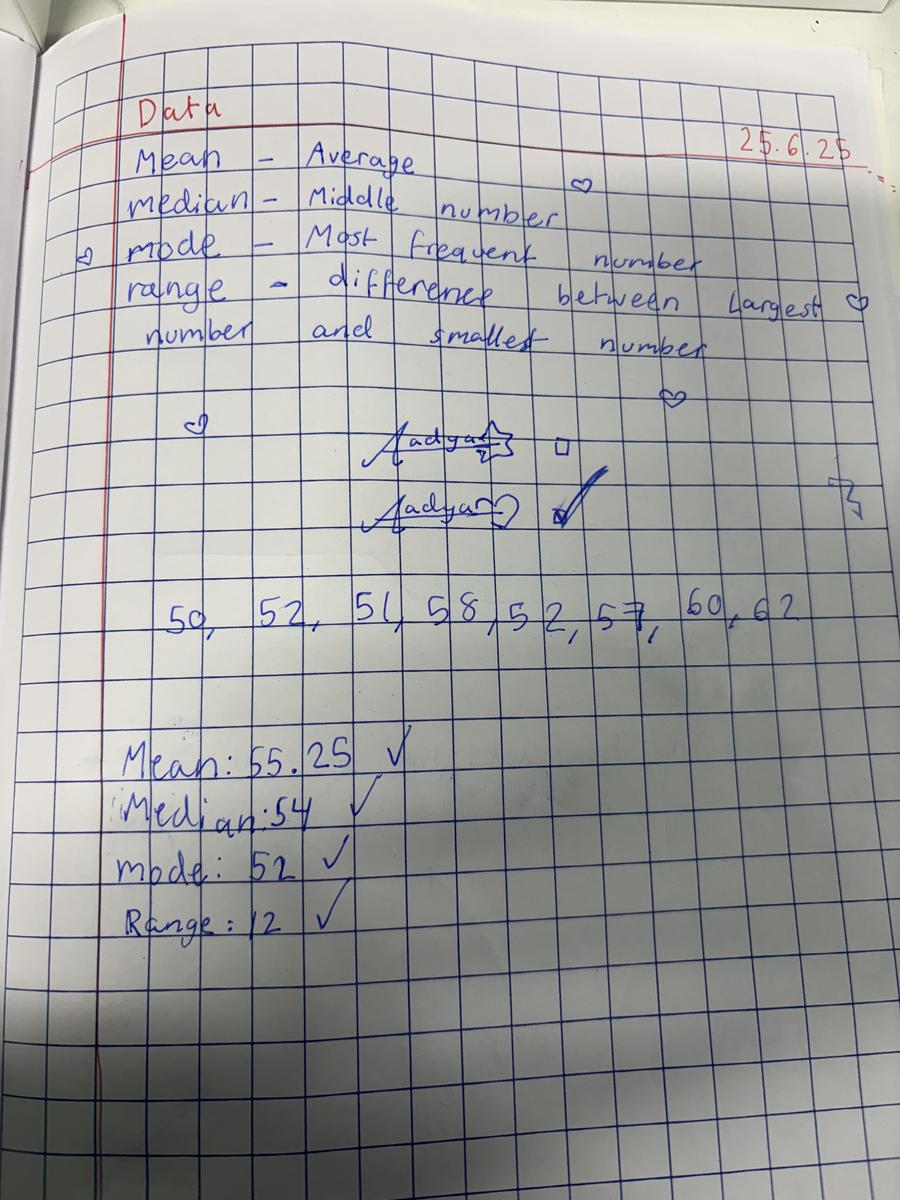 Data
25.6.25
Mean - Average
median - Middle number
mode - Most frequent number
range - difference between largest
number and smallest number
Aadya
Aadya
50, 52, 51, 58, 52, 57, 60, 62
Mean: 55.25 ✓
Median: 54 ✓
mode: 52 ✓
Range: 12 ✓